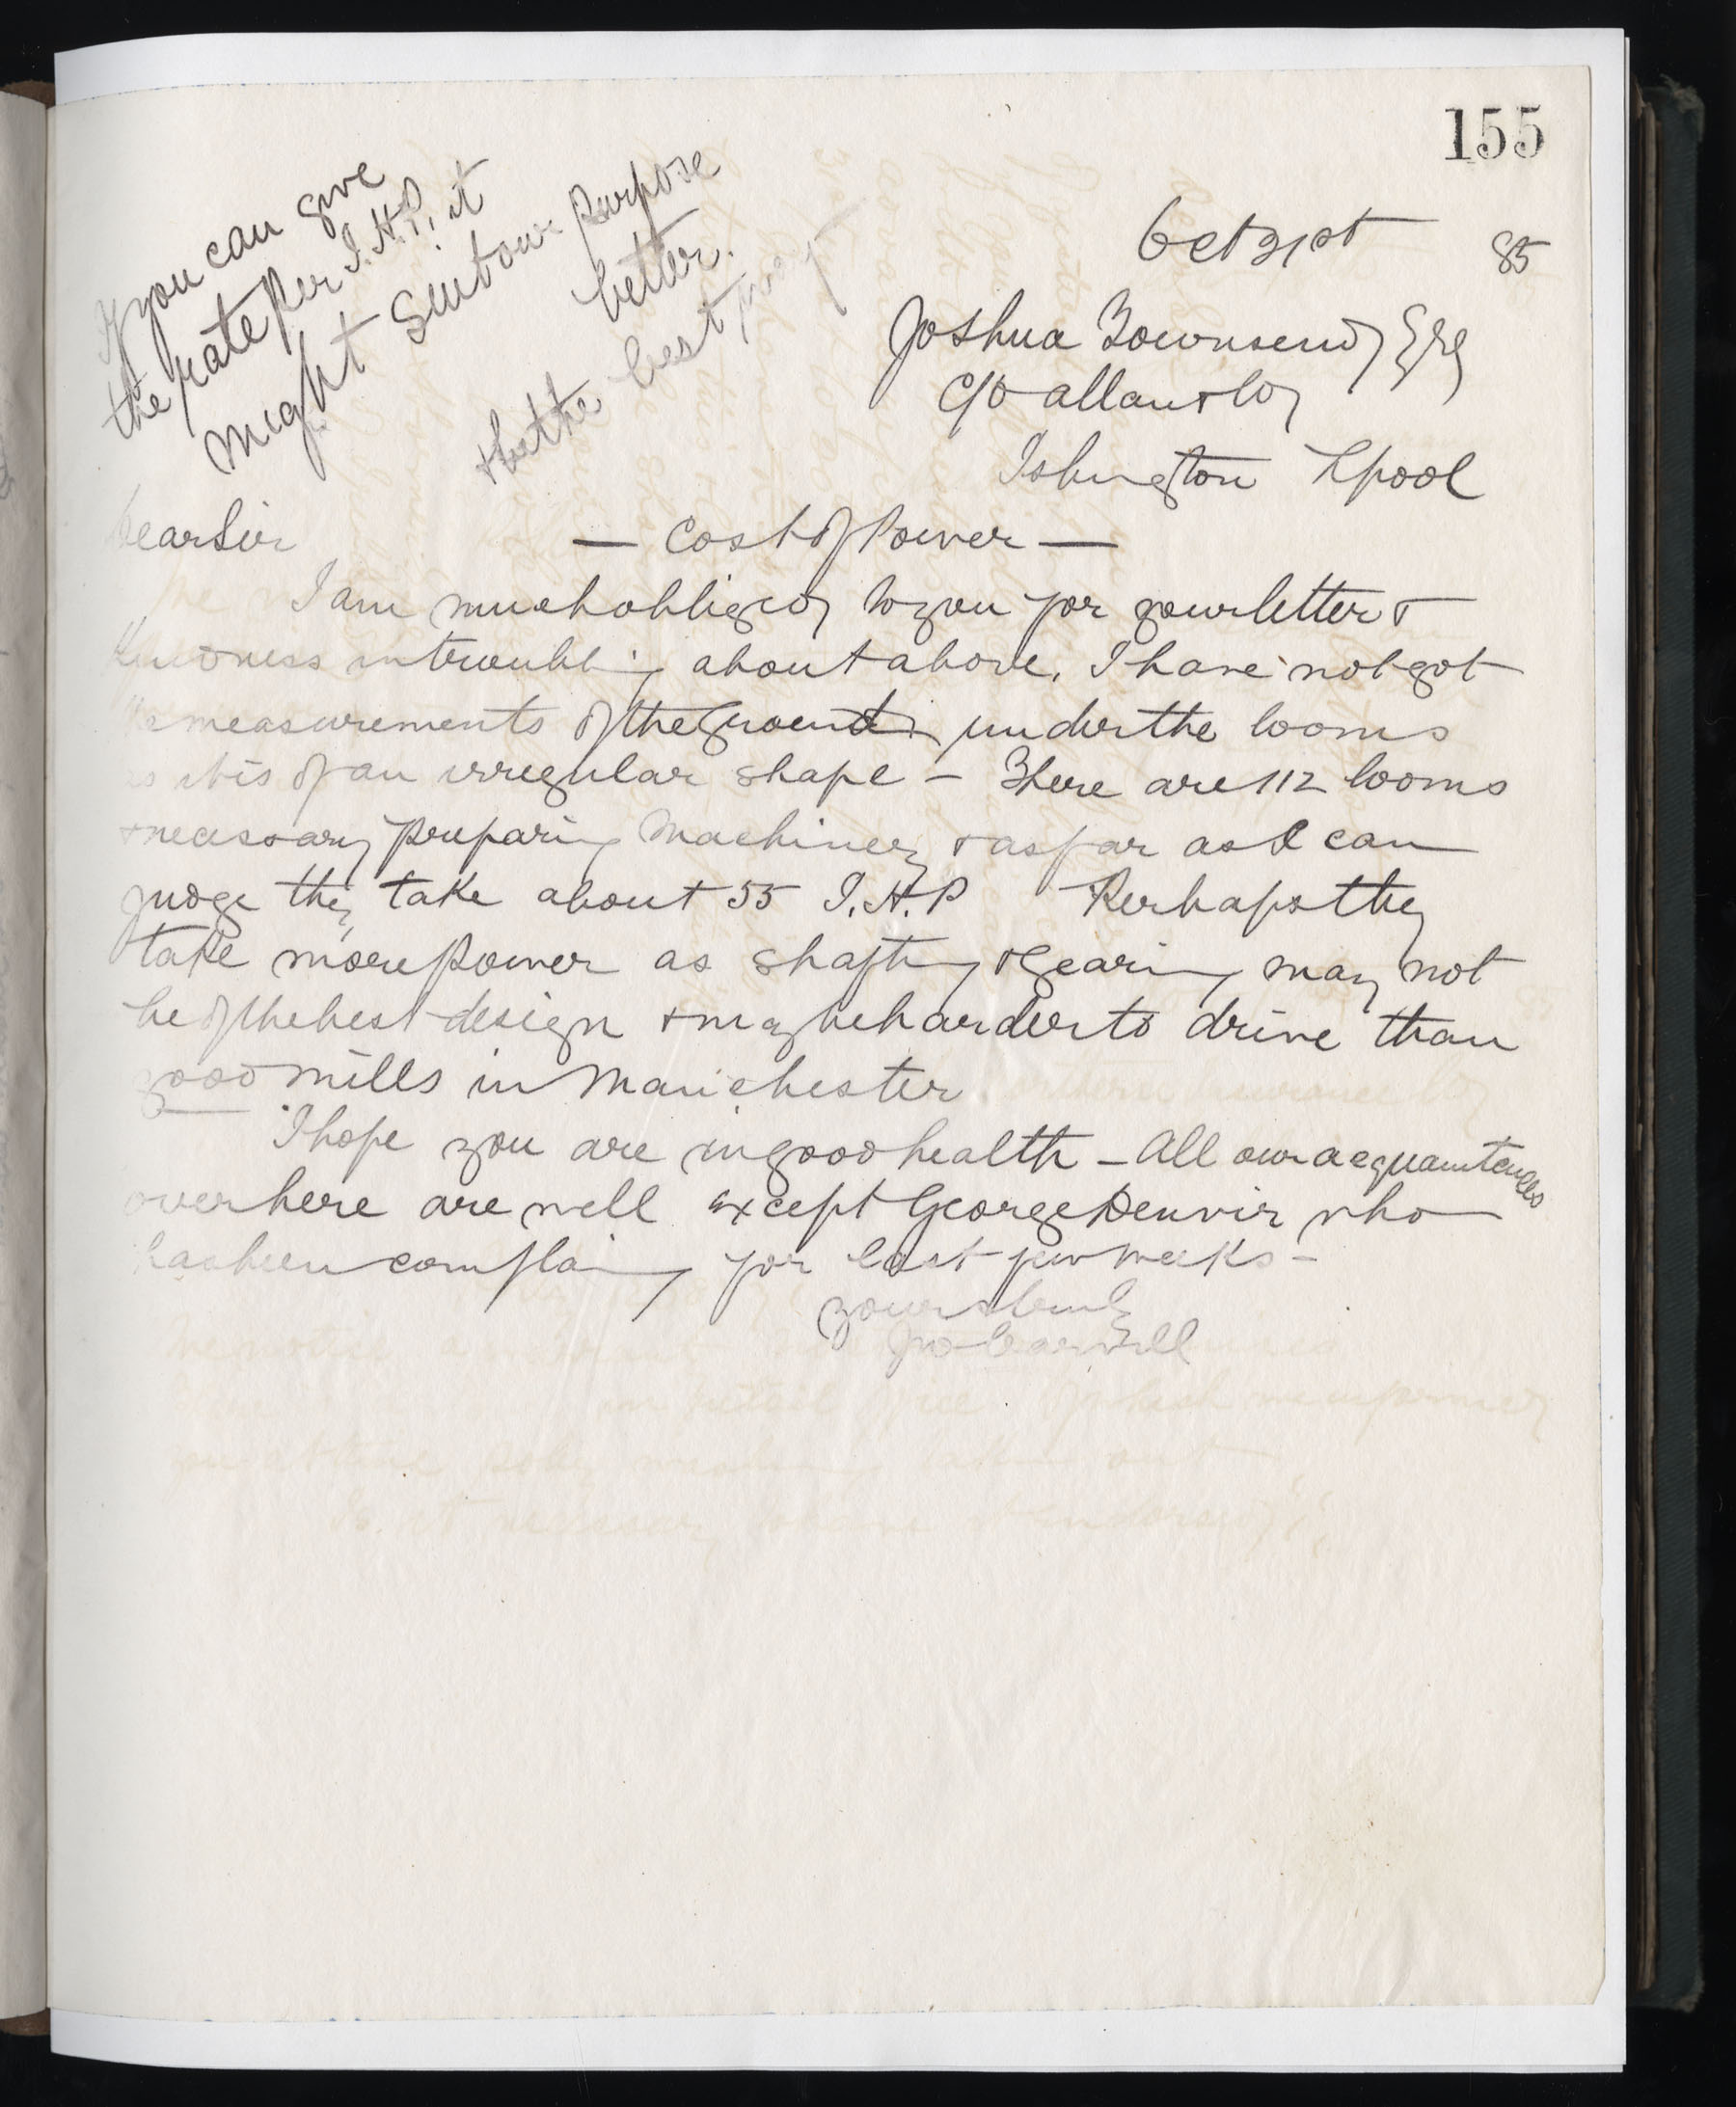 155
Oct 21st 85
If you can give
the rate per I.H.P. it
might suit our purpose
better.
& be the best
Joshua Townsend Esq
c/o Allan & Co
Islington Lpool
Dear Sir
— Cost of Power —
I am much obliged to you for your letter &
kindness in troubling about above. I have not got
the measurements of the ground under the looms
as it is of an irregular shape – There are 112 looms
& necessary preparing machinery & as far as I can
judge they take about 55 I.H.P Perhaps they
take more power as shafting & gearing may not
be of the best design & may be harder to drive than
good mills in Manchester.
I hope you are in good health – All our acquaintences
over here are well except George Denvir who
has been complaing for last few weeks –
Yours truly